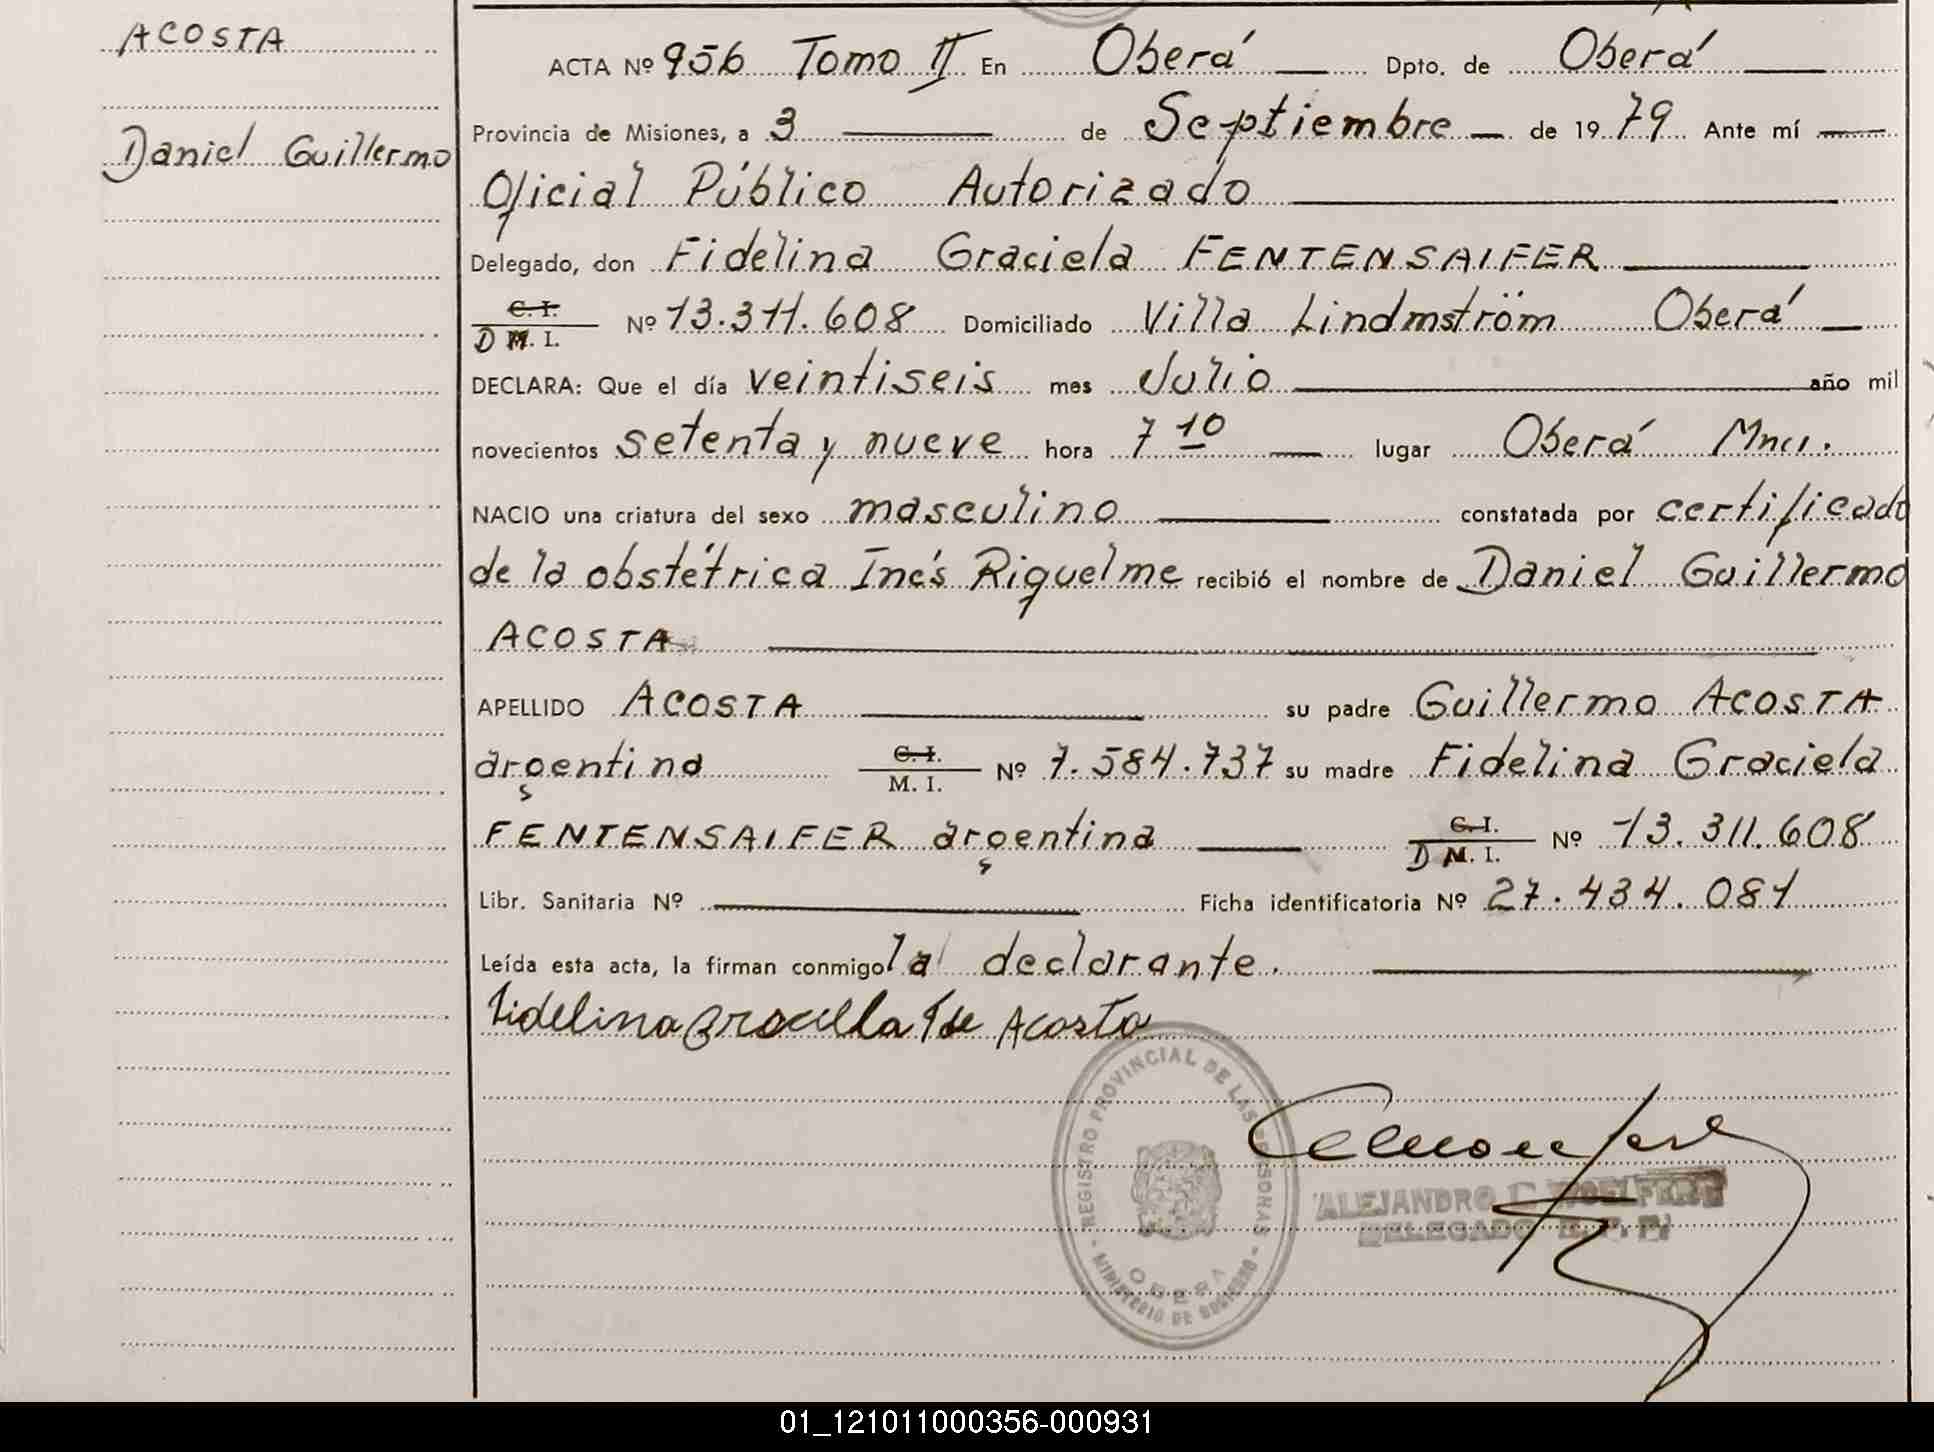 ACOSTA
Daniel Guillermo
ACTA Nº 956 Tomo II En Oberá Dpto. de Oberá
Provincia de Misiones, a 3 de Septiembre de 1979 Ante mí
Oficial Público Autorizado
Delegado, don Fidelina Graciela FENTENSAIFER
C. I.
D M. I. Nº 13.311.608 Domiciliado Villa Lindmström Oberá
DECLARA: Que el día veintiseis mes Julio año mil
novecientos setenta y nueve hora 7 10 lugar Oberá Mnes.
NACIO una criatura del sexo masculino constatada por certificado
de la obstétrica Inés Riquelme recibió el nombre de Daniel Guillermo
ACOSTA
APELLIDO ACOSTA su padre Guillermo ACOSTA
argentino C. I. M. I. Nº 7.584.737 su madre Fidelina Graciela
FENTENSAIFER argentina C. I. D M. I. Nº 13.311.608
Libr. Sanitaria Nº Ficha identificatoria Nº 27.434.081
Leída esta acta, la firman conmigo la declarante.
Fidelina Graciela F de Acosta
REGISTRO PROVINCIAL DE LAS PERSONAS
OBERA
MINISTERIO DE GOBIERNO
ALEJANDRO
DELEGADO
01_121011000356-000931